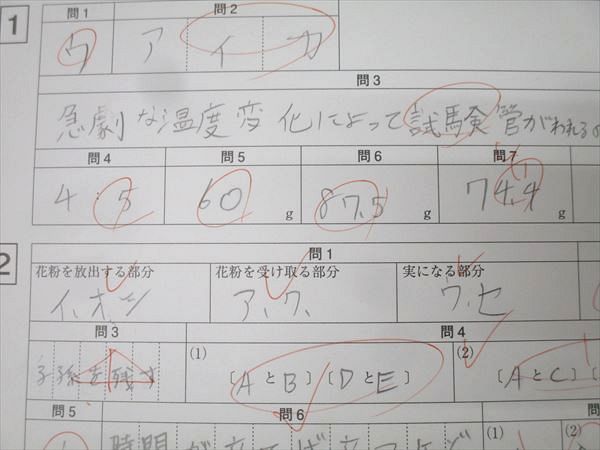 1
問1 問2
ウ ア イ カ
問3
急劇な温度変化によって試験管がわれるの
問4 問5 問6 問7
4 5 60 g 87.5 g 74.4 g
2
問1
花粉を放出する部分 花粉を受け取る部分 実になる部分
イ、オ、ツ ア、ク、 ウ、セ
問3 問4
子孫を残す (1) [AとB] [DとE] (2) [AとC] [
問5 問6 問
(1) (2)
時間が立てば立つほど